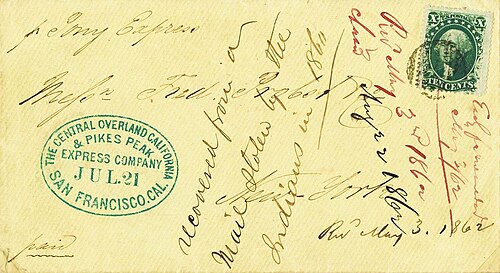 p Pony Express
Messrs Fred
New York
paid
THE CENTRAL OVERLAND CALIFORNIA
& PIKES PEAK
EXPRESS COMPANY
JUL. 21
SAN FRANCISCO, CAL.
recovered from a
Mail stolen by the
Indians in 1860
Recd May 3rd 1862
May 2 1862
Recd May 3. 1862
X X
TEN CENTS